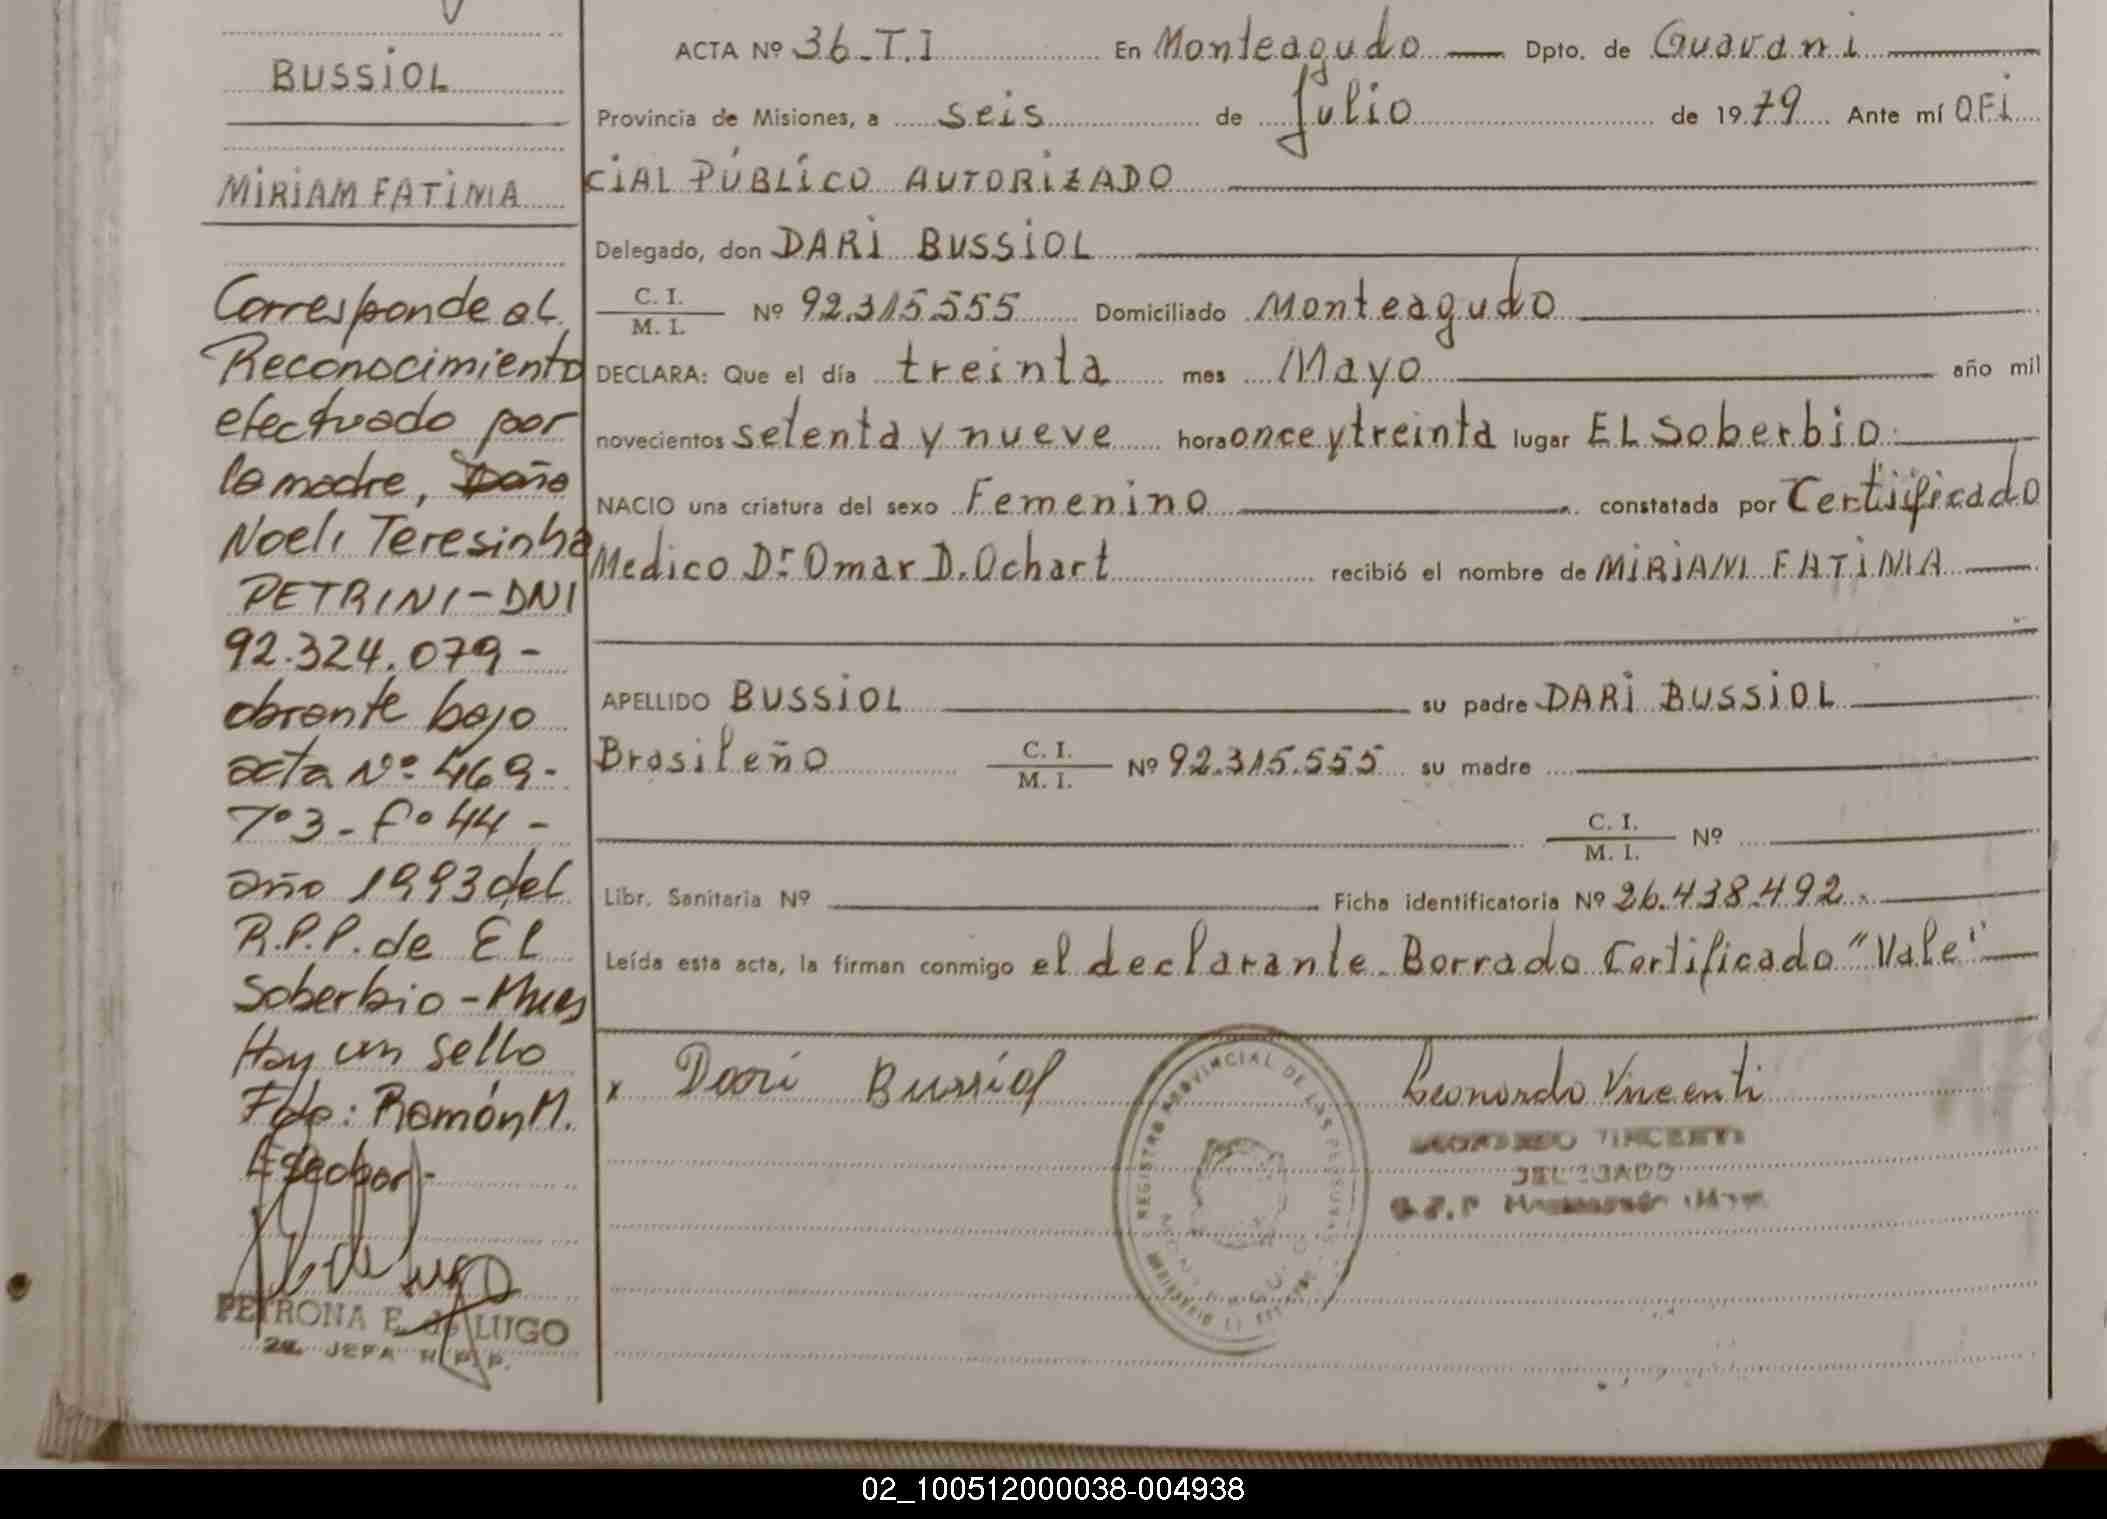 BUSSIOL
MIRIAM FATIMA
Corresponde al
Reconocimiento
efectuado por
la madre, Doña
Noeli Teresinha
PETRINI - DNI
92.324.079 -
obrante bajo
acta Nº 469 -
Tº 3 - Fº 44 -
año 1993 del
R.P.P. de El
Soberbio - Mnes
Hay un sello
Fdo: Ramón M.
Escobar -
PETRONA E. de LUGO
2a. JEFA R.P.P.
ACTA Nº 36-T.I En Monteagudo Dpto. de Guarani
Provincia de Misiones, a seis de Julio de 1979 Ante mí OFI
CIAL PÚBLICO AUTORIZADO
Delegado, don DARI BUSSIOL
C. I. / M. I. Nº 92.315.555 Domiciliado Monteagudo
DECLARA: Que el día treinta mes Mayo año mil
novecientos setenta y nueve hora once y treinta lugar EL Soberbio
NACIO una criatura del sexo Femenino constatada por Certificado
Medico Dr Omar D. Ochart recibió el nombre de MIRIAM FATIMA
APELLIDO BUSSIOL su padre DARI BUSSIOL
Brasileño C. I. / M. I. Nº 92.315.555 su madre
C. I. / M. I. Nº
Libr. Sanitaria Nº Ficha identificatoria Nº 26.438.492
Leída esta acta, la firman conmigo el declarante. Borrado Certificado "Vale"
x Dari Bussiol Leonardo Vincenti
REGISTRO PROVINCIAL DE LAS PERSONAS
LEONARDO VINCENTI
DELEGADO
02_100512000038-004938